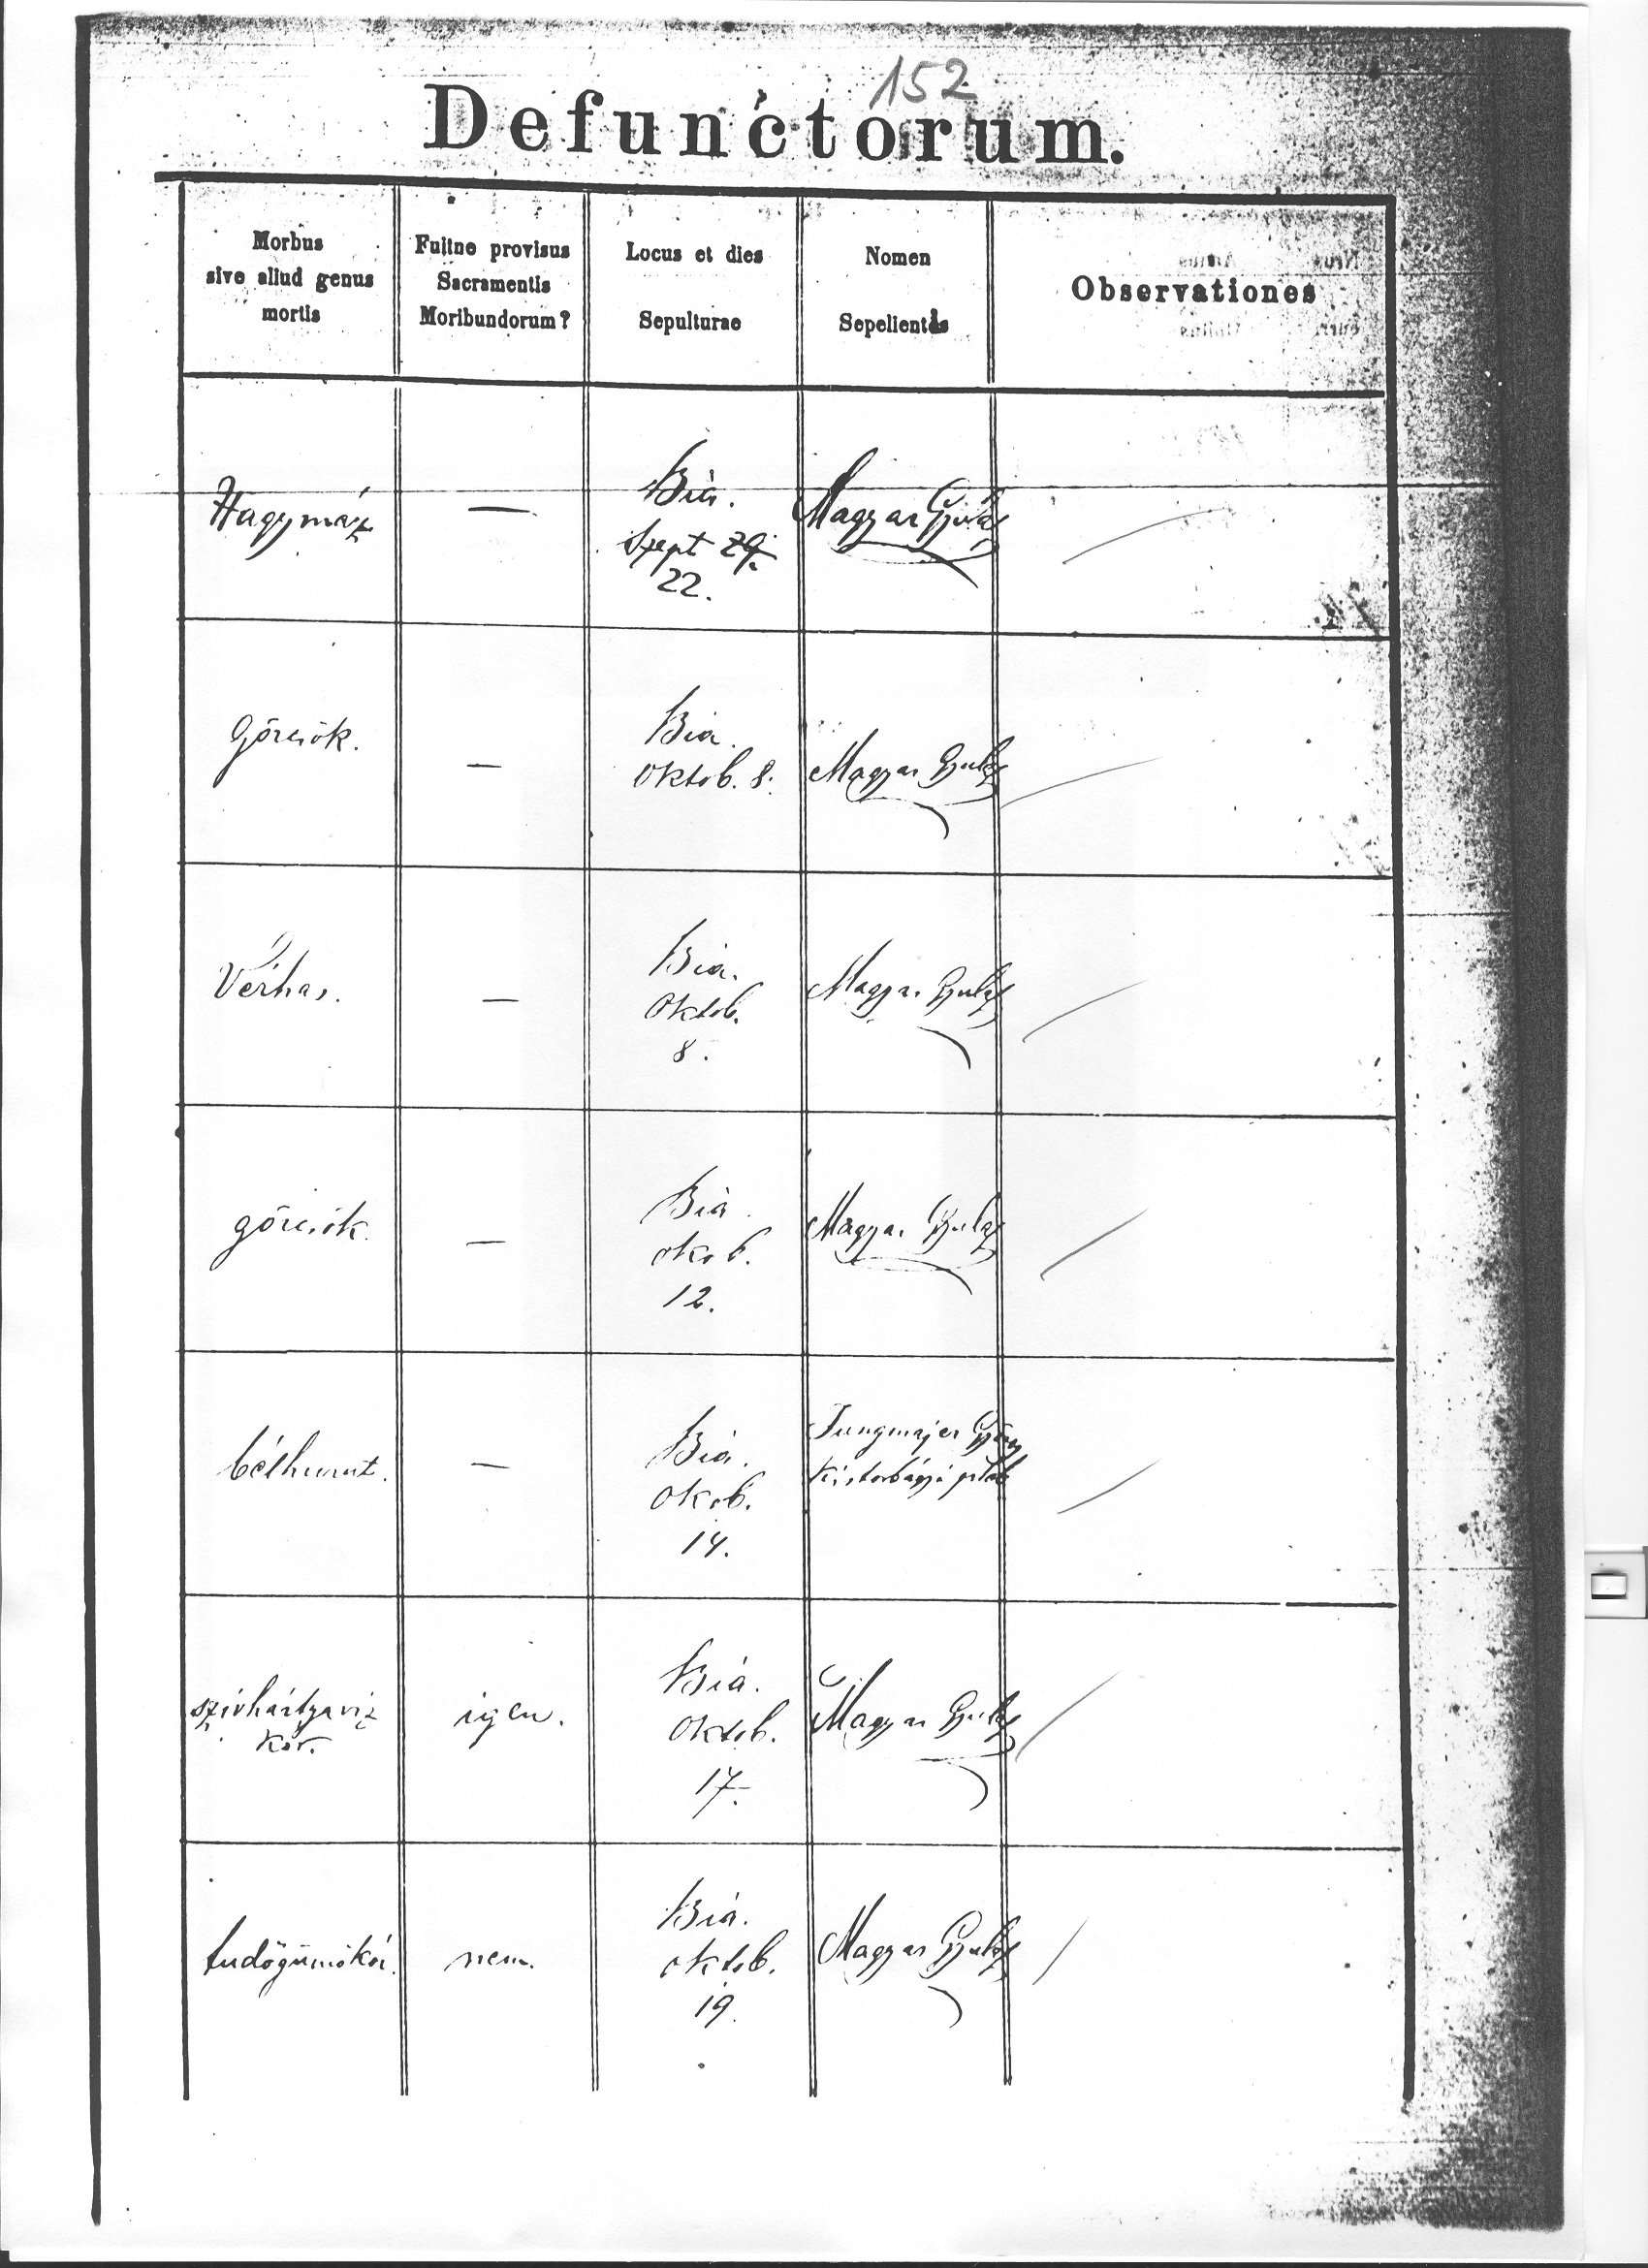 152
Defunctorum.
Morbus
sive aliud genus
mortis
Fuitne provisus
Sacramentis
Moribundorum?
Locus et dies
Sepulturae
Nomen
Sepelientis
Observationes
Hagymáz
—
Bia.
Szept 29.
22.
Magyar Gyula
Görcsök.
—
Bia.
Oktob. 8.
Magyar Gyula
Vérhas.
—
Bia.
Oktob.
8.
Magyar Gyula
görcsök.
—
Bia.
Okob.
12.
Magyar Gyula
bélhurut.
—
Bia.
Okob.
14.
Jungmajer
Kistorbágyi pléb
szívhártyaviz
kór.
igen.
Biá.
Oktob.
17.
Magyar Gyula
tudőgümőkór.
nem.
Biá.
oktob.
19.
Magyar Gyula